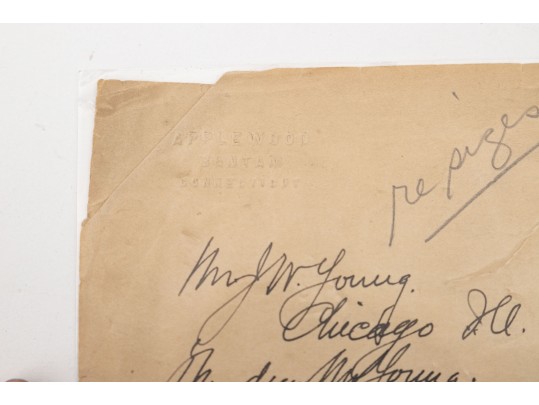 APPLEWOOD
BANTAM
CONNECTICUT
re sizes
Mr J. W. Young.
Chicago Ill.
My dear Mr Young.